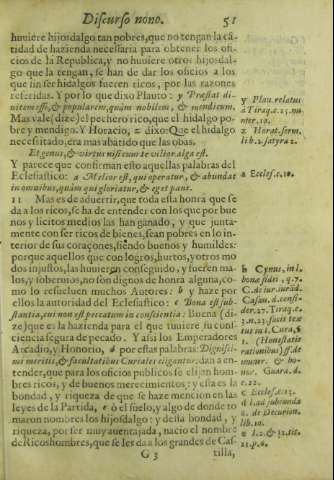 Discurso nono. 51
huuiere hijosdalgo tan pobres, que no tengan la cã
tidad de hazienda necessaria para obtener los ofi-
cios de la Republica, y no huuiere otros hijosdal-
go que la tengan, se han de dar los oficios a los
que sin ser hidalgos fueren ricos, por las razones
referidas. Y por lo que dixo Plauto: y Præstat di-
uitem esse, & popularem, quàm nobilem, & mendicum.
Mas vale (dize) el pechero rico, que el hidalgo po-
bre y mendigo. Y Horacio, z dixo: Que el hidalgo
necesitado, era mas abatido que las obas.
Et genus, & virtus nisi cum re vilior alga est.
Y parece que confirman esto aquellas palabras del
Eclesiastico: a Melior est, qui operatur, & abundat
in omnibus, quàm qui gloriatur, & eget pane.
11 Mas es de aduertir, que toda esta honra que se
da a los ricos, se ha de entender con los que por bue
nos y licitos medios las han ganado, y que junta-
mente con ser ricos de bienes, sean pobres en lo in-
terior de sus coraçones, siendo buenos y humildes:
porque aquellos que con logros, hurtos, y otros mo
dos injustos, las huuieren conseguido, y fueren ma-
los, y soberuios, no son dignos de honra alguna, co-
mo lo resueluen muchos Autores: b y haze por
ellos la autoridad del Eclesiastico: c Bona est sub-
stantia, cui non est peccatum in conscientia: Buena (di-
ze) que es la hazienda para el que tuuiere su conf-
ciencia segura de pecado. Y assi los Emperadores
Arcadio, y Honorio, d por estas palabras: Dignissi-
mi meritis, & facultatibus Curales eligantur: dan a en-
tender, que para los oficios publicos se elijan hom-
bres ricos, y de buenos merecimientos: y esta es la
bondad, y riqueza de que se haze mencion en las
leyes de la Partida, e ò el suelo, y algo de donde to
maron nombres los hijosdalgo: y desta bondad, y
riqueza, por ser muy auentajada, nacio el nombre
de Ricoshombres, que se les da a los grandes de Cas-
G 3 tilla,
y Plau. relatus
à Tiraq. c. 23. nu-
z Horat. serm.
lib. 2. satyra 2.
a Eccles. c. 10.
b Cynus, in l.
C. de iur. iurād.
c Eccles. c. 13.
d l. ad subeunda
C. de Decurion.
lib. 10.